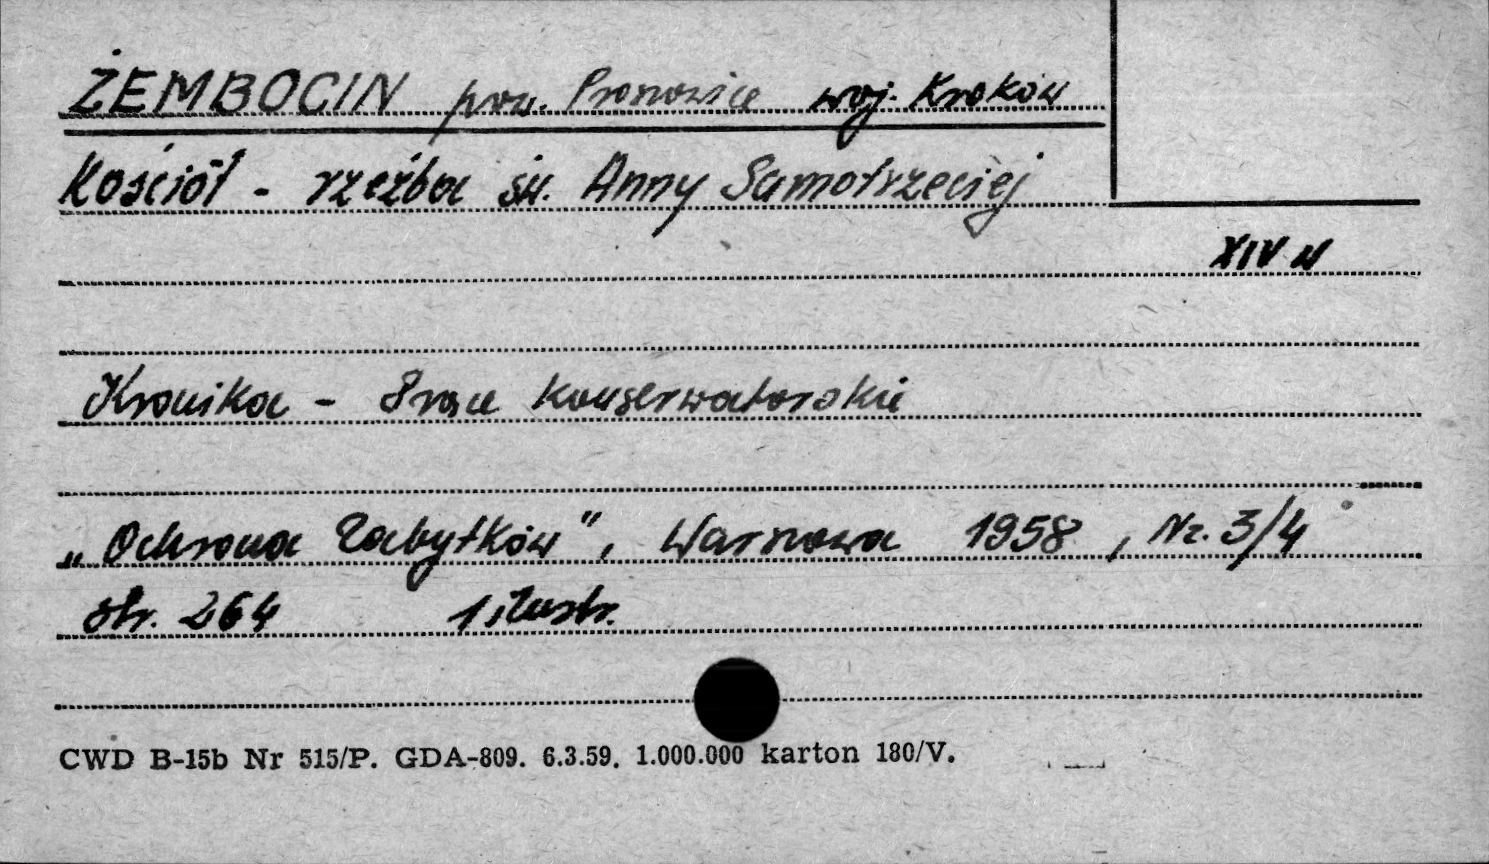 ŻEMBOCIN pow. Pronowice woj. Kraków
Kościół - rzeźba św. Anny Samotrzeciej
XIV w
Kronika - Prace konserwatorskie
„Ochrona Zabytków", Warszawa 1958, Nr. 3/4
str. 264 1 ilustr.
CWD B-15b Nr 515/P. GDA-809. 6.3.59. 1.000.000 karton 180/V.